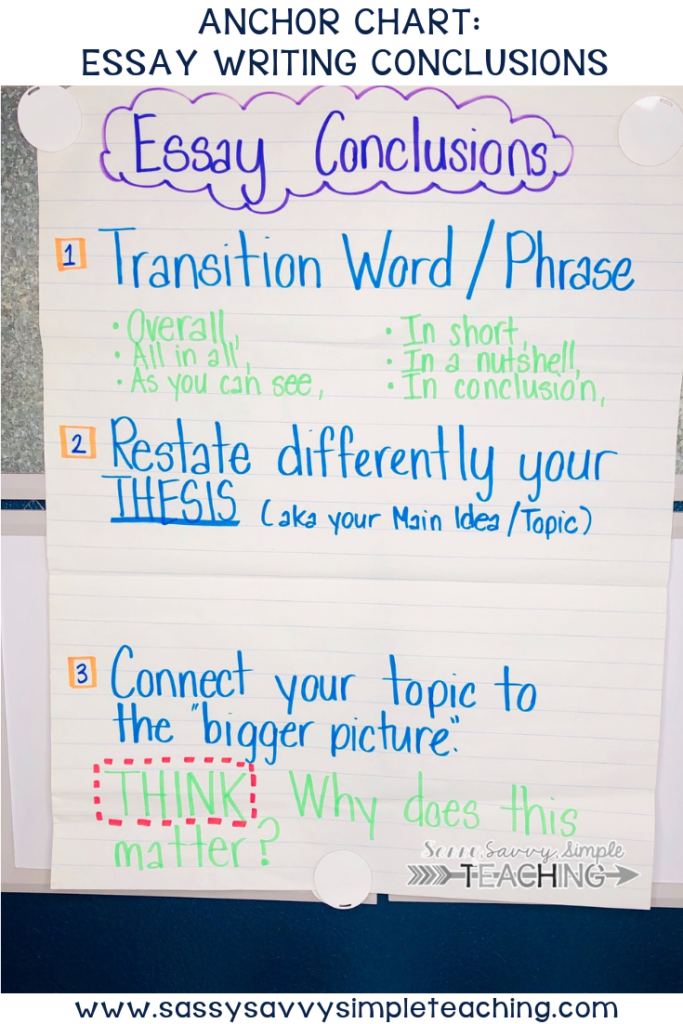 ANCHOR CHART:
ESSAY WRITING CONCLUSIONS
Essay Conclusions
1 Transition Word / Phrase
• Overall,
• All in all,
• As you can see,
• In short,
• In a nutshell,
• In conclusion,
2 Restate differently your
THESIS (aka your Main Idea/Topic)
3 Connect your topic to
the "bigger picture".
THINK Why does this
matter?
Savvy, Simple
TEACHING
www.sassysavvysimpleteaching.com